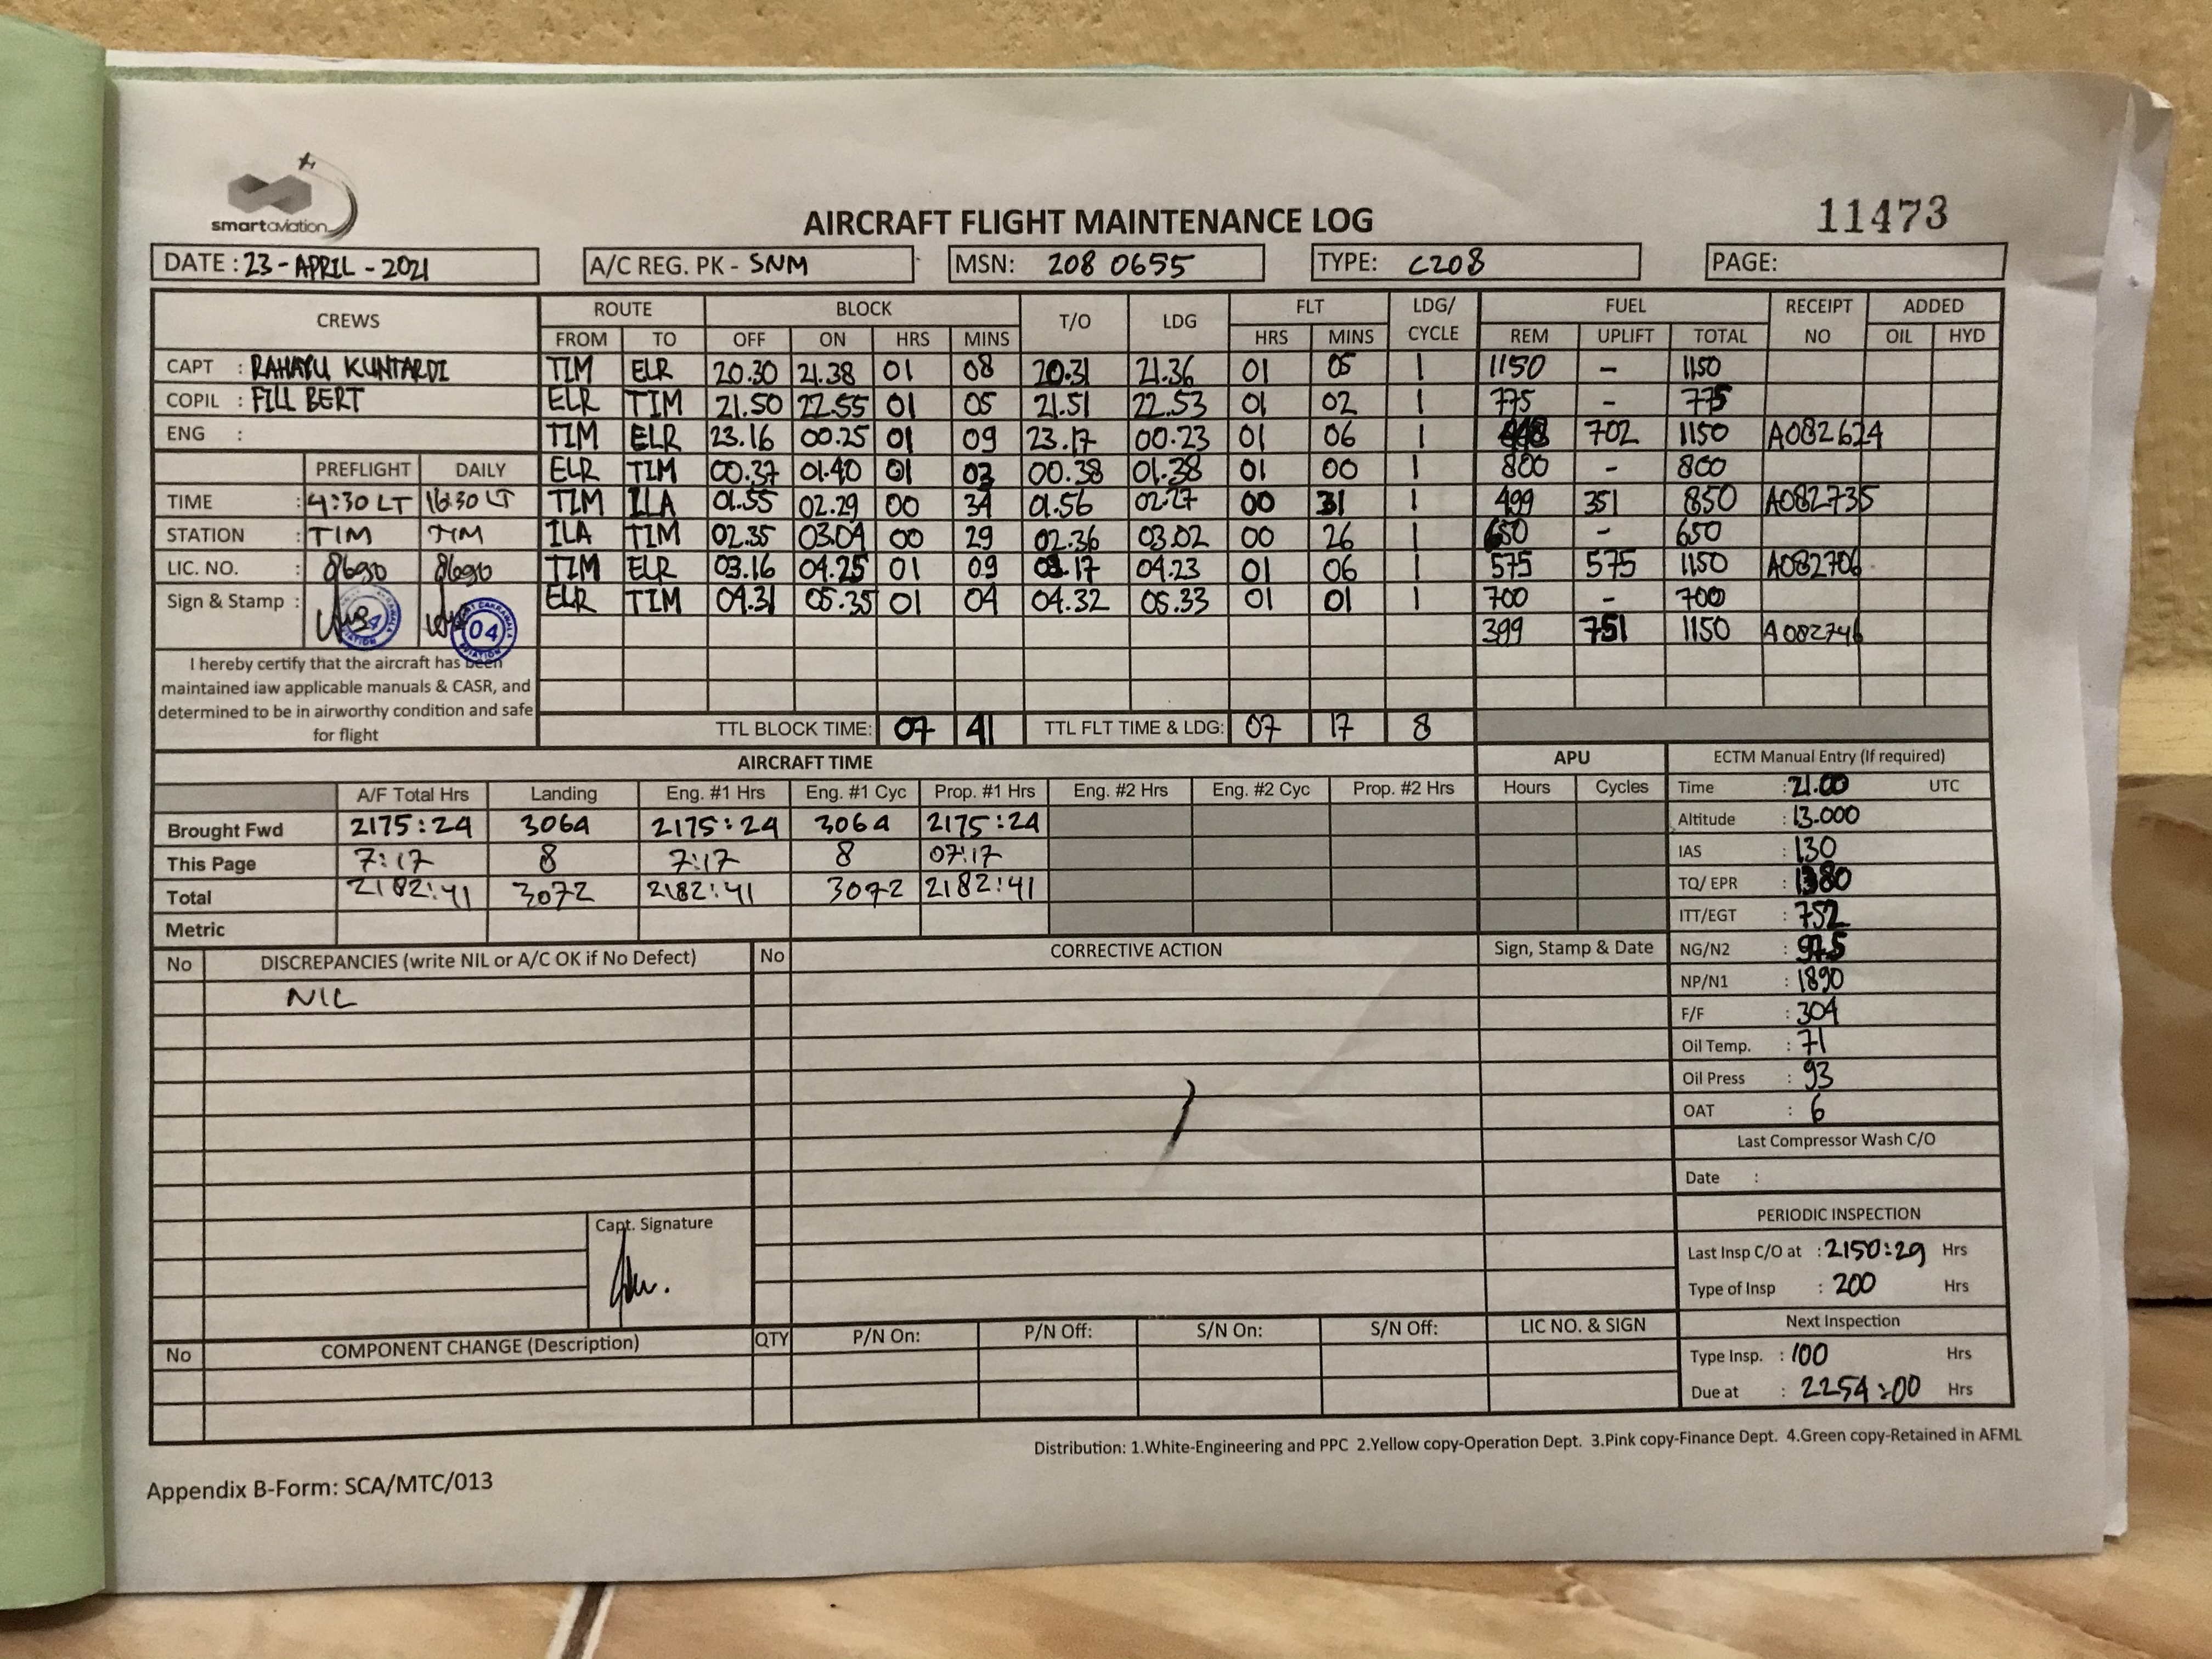 smartaviation
AIRCRAFT FLIGHT MAINTENANCE LOG
11473
DATE : 23 - APRIL - 2021 A/C REG. PK - SNM MSN: 208 0655 TYPE: C208 PAGE:
CREWS ROUTE BLOCK T/O LDG FLT LDG/ CYCLE FUEL RECEIPT NO ADDED
FROM TO OFF ON HRS MINS HRS MINS REM UPLIFT TOTAL OIL HYD
CAPT : RAHAYU KUNTARDI TIM ELR 20.30 21.38 01 08 20.31 21.36 01 05 1 1150 - 1150
COPIL : FILL BERT ELR TIM 21.50 22.55 01 05 21.51 22.53 01 02 1 775 - 775
ENG : TIM ELR 23.16 00.25 01 09 23.17 00.23 01 06 1 702 1150 A082624
PREFLIGHT DAILY ELR TIM 00.37 01.40 01 03 00.38 01.38 01 00 1 800 - 800
TIME : 4:30 LT 16:30 LT TIM ILA 01.55 02.29 00 34 01.56 02.27 00 31 1 499 351 850 A082735
STATION : TIM TIM ILA TIM 02.35 03.04 00 29 02.36 03.02 00 26 1 650 - 650
LIC. NO. : 8690 8690 TIM ELR 03.16 04.25 01 09 03.17 04.23 01 06 1 575 575 1150 A082706
Sign & Stamp : 04 ELR TIM 04.31 05.35 01 04 04.32 05.33 01 01 1 700 - 700
399 751 1150 A082746
I hereby certify that the aircraft has been
maintained iaw applicable manuals & CASR, and
determined to be in airworthy condition and safe
for flight
TTL BLOCK TIME: 07 41 TTL FLT TIME & LDG: 07 17 8
AIRCRAFT TIME APU ECTM Manual Entry (If required)
A/F Total Hrs Landing Eng. #1 Hrs Eng. #1 Cyc Prop. #1 Hrs Eng. #2 Hrs Eng. #2 Cyc Prop. #2 Hrs Hours Cycles
Brought Fwd 2175:24 3064 2175:24 3064 2175:24
This Page 7:17 8 7:17 8 07:17
Total 2182:41 3072 2182:41 3072 2182:41
Metric
Time : 21.00 UTC
Altitude : 13.000
IAS : 130
TQ/ EPR : 1380
ITT/EGT : 752
NG/N2 :
NP/N1 : 1890
F/F : 304
Oil Temp. : 71
Oil Press : 93
OAT : 6
No DISCREPANCIES (write NIL or A/C OK if No Defect) No CORRECTIVE ACTION Sign, Stamp & Date
NIL
Last Compressor Wash C/O
Date :
Capt. Signature
PERIODIC INSPECTION
Last Insp C/O at : 2150:29 Hrs
Type of Insp : 200 Hrs
Next Inspection
Type Insp. : 100 Hrs
Due at : 2254:00 Hrs
No COMPONENT CHANGE (Description) QTY P/N On: P/N Off: S/N On: S/N Off: LIC NO. & SIGN
Distribution: 1.White-Engineering and PPC 2.Yellow copy-Operation Dept. 3.Pink copy-Finance Dept. 4.Green copy-Retained in AFML
Appendix B-Form: SCA/MTC/013